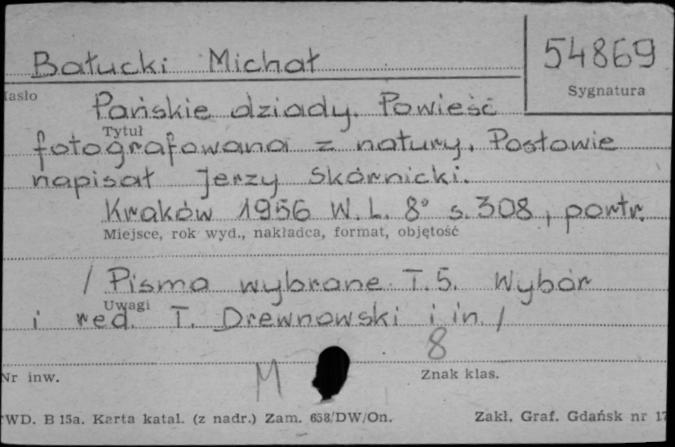 Bałucki Michał
54869
Hasło
Sygnatura
Pańskie dziady. Powieść
Tytuł
fotografowana z natury. Posłowie
napisał Jerzy Skórnicki.
Kraków 1956 W.L. 8° s. 308, portr.
Miejsce, rok wyd., nakładca, format, objętość
/ Pisma wybrane T. 5. Wybór
Uwagi
i red. T. Drewnowski i in. /
8
Nr inw.
M
Znak klas.
WD. B 15a. Karta katal. (z nadr.) Zam. 658/DW/On.
Zakł. Graf. Gdańsk nr 17